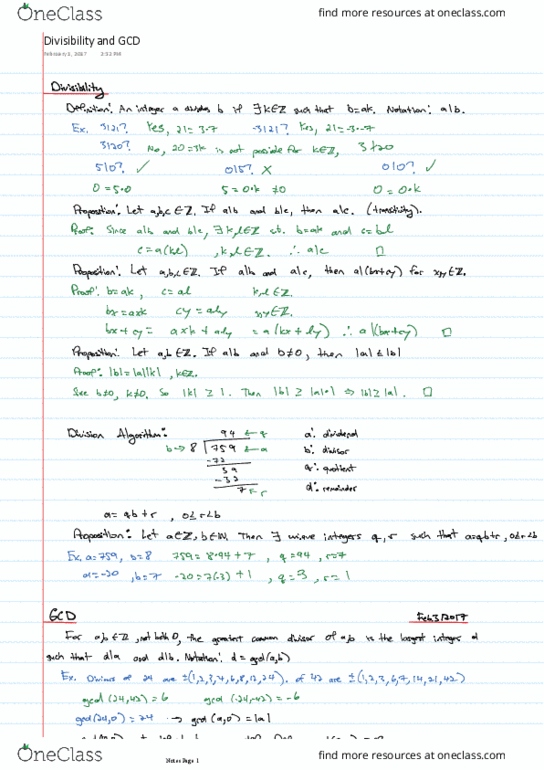 OneClass
find more resources at oneclass.com
Divisibility and GCD
February 1, 2017 2:52 PM
Divisibility
Definition: An integer a divides b if ∃k∈ℤ such that b=ak. Notation: a|b.
Ex. 3|21? Yes, 21=3·7 -3|21? Yes, 21=-3·-7
3|20? No, 20=3k is not possible for k∈ℤ, 3∤20
5|0? ✓ 0|5? ✗ 0|0? ✓
0=5·0 5=0·k ≠0 0=0·k
Proposition: Let a,b,c∈ℤ. If a|b and b|c, then a|c. (transitivity).
Proof: Since a|b and b|c, ∃k,l∈ℤ st. b=ak and c=bl
c=a(kl) ,k,l∈ℤ. ∴ a|c □
Proposition: Let a,b,c∈ℤ. If a|b and a|c, then a|(bx+cy) for x,y∈ℤ.
Proof: b=ak, c=al k,l∈ℤ.
bx=axk cy=aly x,y∈ℤ.
bx+cy= axk+aly =a(kx+ly) ∴ a|(bx+cy) □
Proposition: Let a,b∈ℤ. If a|b and b≠0, then |a|≤|b|
Proof: |b|=|a||k|, k∈ℤ.
b≠0, k≠0. So |k|≥1. Then |b|≥|a|·1 ⇒ |b|≥|a|. □
Division Algorithm: 94 ← q a: dividend
b→ 8 759 ← a b: divisor
-72
39 q: quotient
-32
7 ← r d: remainder
a=qb+r, 0≤r<b
Proposition: Let a∈ℤ, b∈ℕ. Then ∃ unique integers q,r such that a=qb+r, 0≤r<b
Ex. a=759, b=8 759=8·94+7, q=94, r=7
a=-20, b=7 -20=7(-3)+1, q=3, r=1
GCD Feb 3/2017
For a,b∈ℤ, not both 0, the greatest common divisor of a,b is the largest integer d
such that d|a and d|b. Notation: d=gcd(a,b)
Ex. Divisors of 24 are ±(1,2,3,4,6,8,12,24), of 42 are ±(1,2,3,6,7,14,21,42)
gcd(24,42)=6 gcd(-24,-42)=-6
gcd(24,0)=24 → gcd(a,0)=|a|
OneClass
Notes Page 1
find more resources at oneclass.com